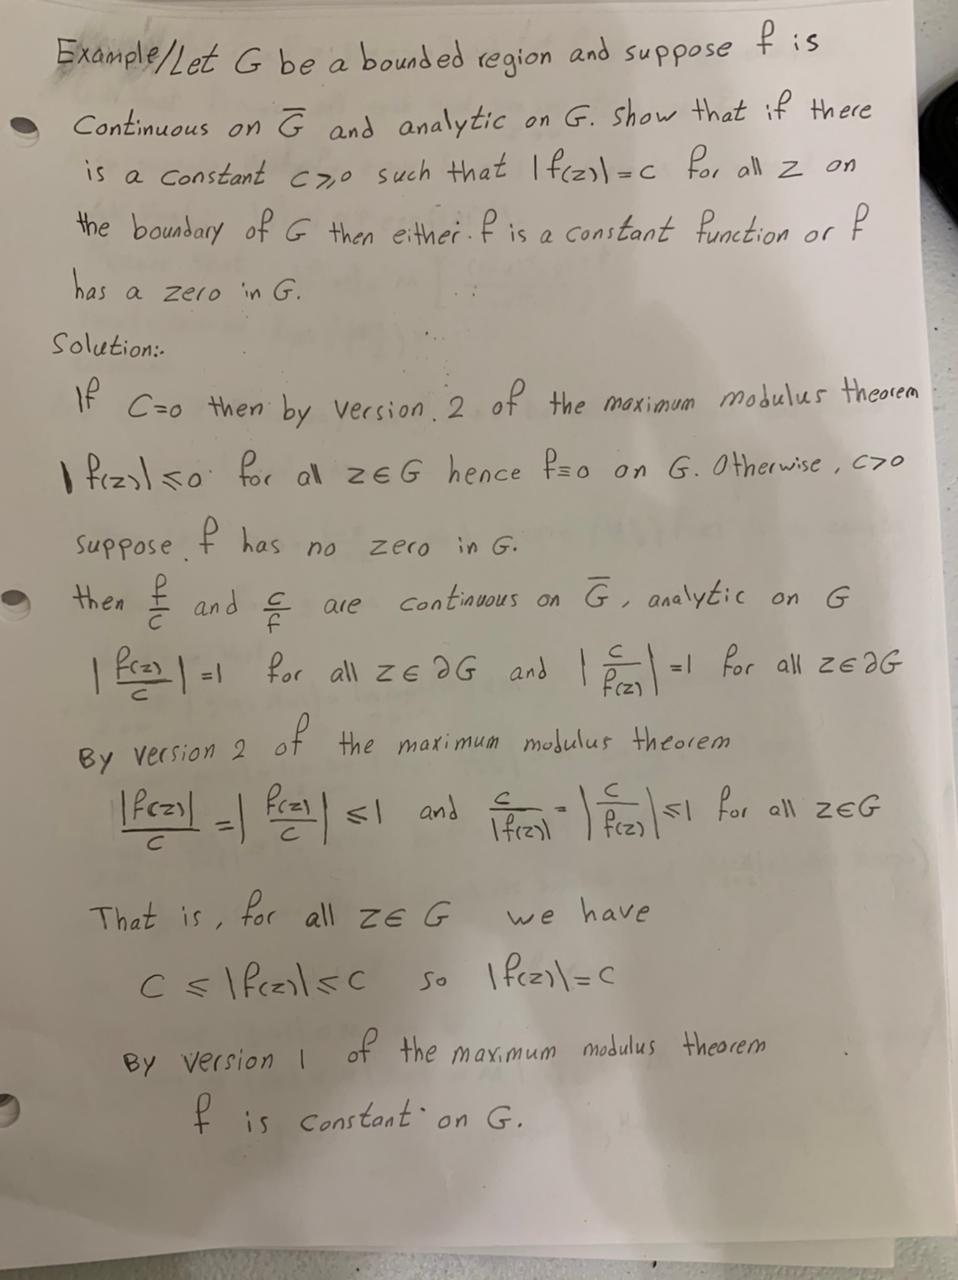 Example/Let G be a bounded region and suppose f is
Continuous on G̅ and analytic on G. Show that if there
is a constant c⩾0 such that |f(z)|=c for all z on
the boundary of G then either f is a constant function or f
has a zero in G.
Solution:-
If C=0 then by version 2 of the maximum modulus theorem
|f(z)|⩽0 for all z∈G hence f≡0 on G. Otherwise, c>0
suppose f has no zero in G.
then f/c and c/f are continuous on G̅, analytic on G
|f(z)/c|=1 for all z∈∂G and |c/f(z)|=1 for all z∈∂G
By version 2 of the maximum modulus theorem
|f(z)|/c = |f(z)/c| ⩽1 and c/|f(z)| = |c/f(z)|⩽1 for all z∈G
That is, for all z∈G we have
C ⩽ |f(z)|⩽C so |f(z)|=C
By version 1 of the maximum modulus theorem
f is constant on G.